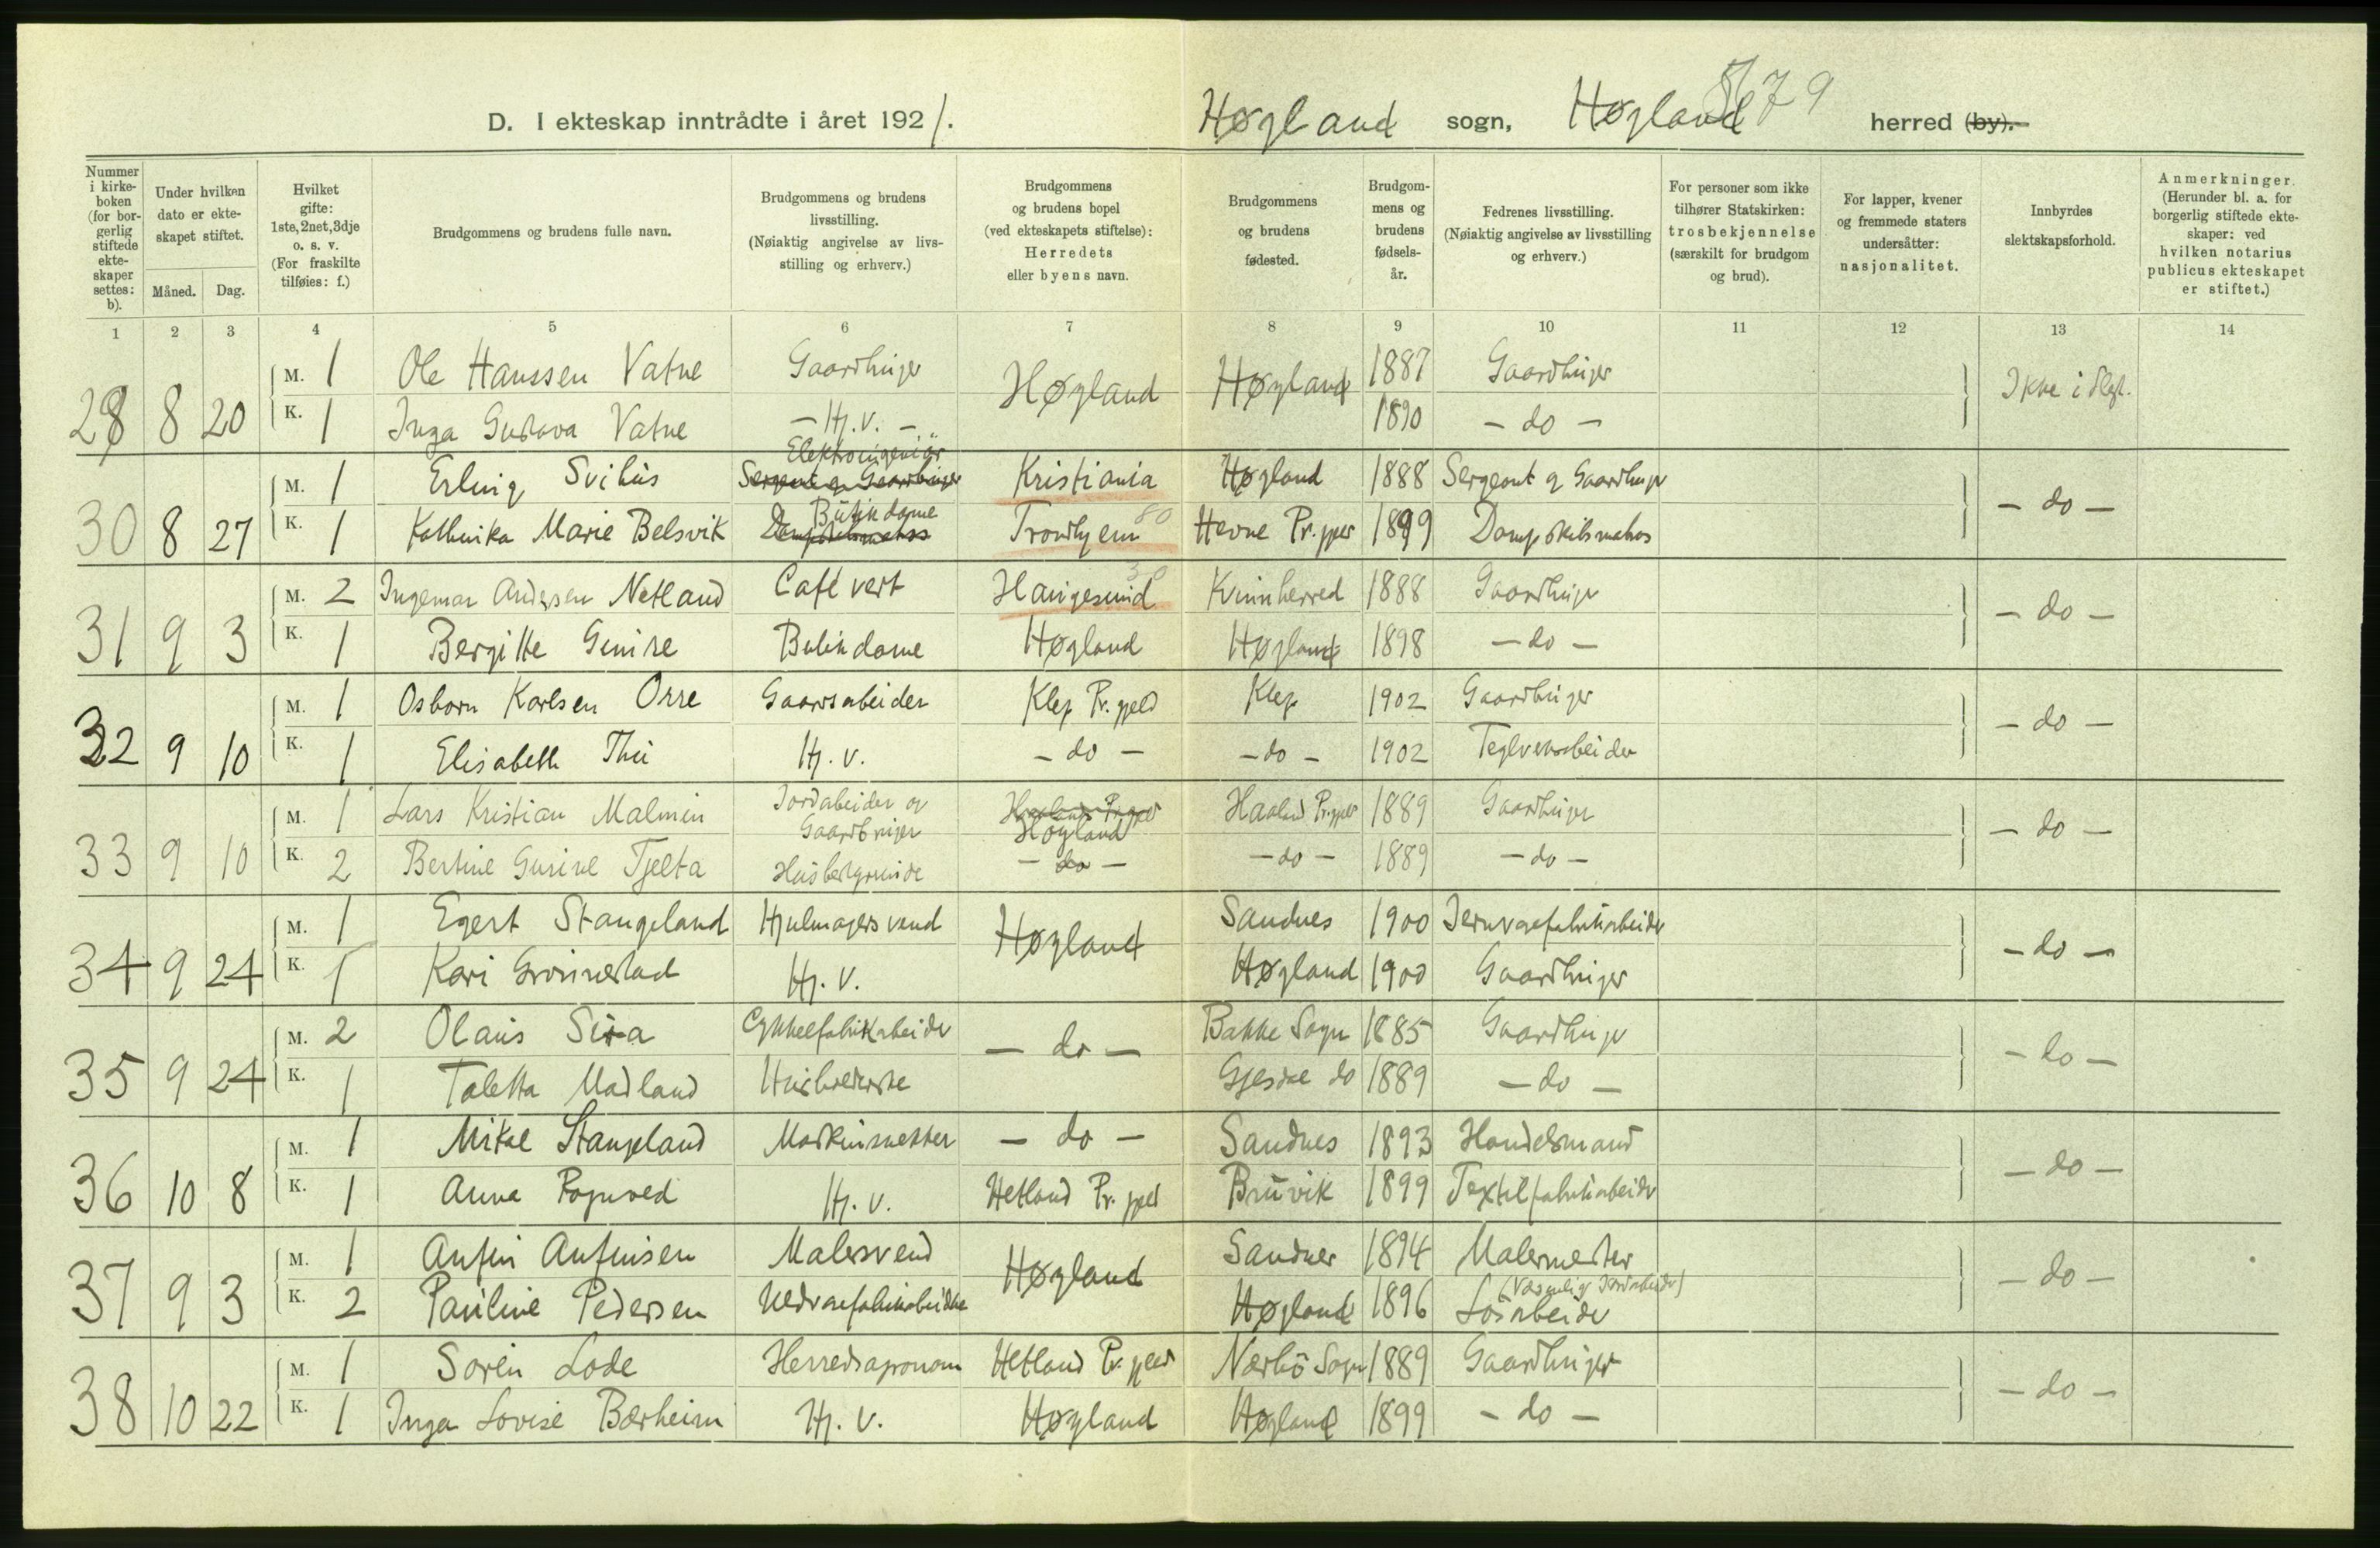 8679
D. I ekteskap inntrådte i året 1921. Høgland sogn, Høgland herred (by).
Nummer i kirke-boken (for bor-gerlig stiftede ekte-skaper settes: b).
Under hvilken dato er ekte-skapet stiftet.
Måned. Dag.
Hvilket gifte: 1ste, 2net, 3dje o. s. v. (For fraskilte tilføies: f.)
Brudgommens og brudens fulle navn.
Brudgommens og brudens livsstilling. (Nøiaktig angivelse av livs-stilling og erhverv.)
Brudgommens og brudens bopel (ved ekteskapets stiftelse): Herredets eller byens navn.
Brudgommens og brudens fødested.
Brudgom-mens og brudens fødsels-år.
Fedrenes livsstilling. (Nøiaktig angivelse av livsstilling og erhverv.)
For personer som ikke tilhører Statskirken: trosbekjennelse (særskilt for brudgom og brud).
For lapper, kvener og fremmede staters undersåtter: nasjonalitet.
Innbyrdes slektskapsforhold.
Anmerkninger. (Herunder bl. a. for borgerlig stiftede ekte-skaper: ved hvilken notarius publicus ekteskapet er stiftet.)
1 2 3 4 5 6 7 8 9 10 11 12 13 14
28 8 20 M. 1 Ole Hanssen Vatne Gaardbruger Høgland Høgland 1887 Gaardbruger Ikke i slegt.
K. 1 Inga Gustava Vatne - Hj. V. - 1890 - do -
Elektroingeniör
30 8 27 M. 1 Erling Svihus Sergeant og Gaardbruger Kristiania Høgland 1888 Sergeant og Gaardbruger - do -
Butikdame 80
K. 1 Kathinka Marie Belsvik Dampskibsmatros Trondhjem Hevne Pr. gjeld 1899 Dampskibsmatros
30
31 9 3 M. 2 Ingemar Andersen Netland Café vert Haugesund Kvinnherred 1888 Gaardbruger - do -
K. 1 Bergitte Butikdame Høgland Høgland 1898 - do -
32 9 10 M. 1 Osborn Karlsen Orre Gaardsarbeider Klep Pr. gjeld Klep 1902 Gaardbruger - do -
K. 1 Elisabeth Thu Hj. V. - do - - do - 1902 Teglverksarbeider
33 9 10 M. 1 Lars Kristian Malmin Jordarbeider og Gaardbruger Haaland Pr. gjeld Høgland Haaland Pr. gjeld 1889 Gaardbruger - do -
K. 2 Bertine Gurine Tjelta Husbestyrerinde - do - - do - 1889 - do -
34 9 24 M. 1 Egert Stangeland Hjulmagersvend Høgland Sandnes 1900 Jernvarefabrikarbeider - do -
K. 1 Kari Hj. V. Høgland 1900 Gaardbruger
35 9 24 M. 2 Olaus Sira Cykkelfabrikarbeider - do - Bakke Sogn 1885 Gaardbruger - do -
K. 1 Taletta Madland Husholderske Gjesdal do 1889 - do -
36 10 8 M. 1 Mikal Stangeland Maskinsnekker - do - Sandnes 1893 Handelsmand - do -
K. 1 Anna Hj. V. Hetland Pr. gjeld Bruvik 1899 Textilfabrikarbeider
37 9 3 M. 1 Anfin Anfinsen Malersvend Høgland Sandnes 1894 Malermester - do -
K. 2 Pauline Pedersen Uldvarefabrikarbeiderske Høgland 1896 (Væsentlig Jordarbeider) Løsarbeider
38 10 22 M. 1 Sorën Lode Herredsagronom Hetland Pr. gjeld Nærbö Sogn 1889 Gaardbruger - do -
K. 1 Inga Lovise Bærheim Hj. V. Høgland Høgland 1899 - do -